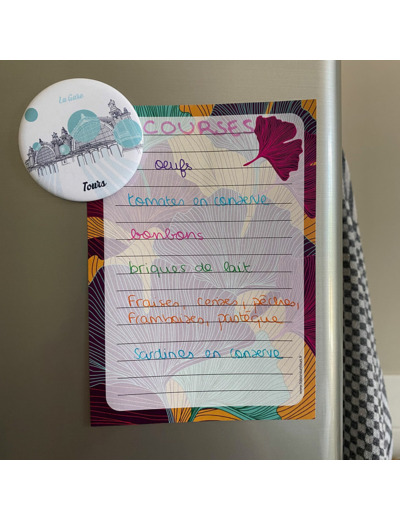 La Gare
Tours
COURSES
oeufs
tomates en conserve
bonbons
briques de lait
Fraises, cerises, pêches,
framboises, pastèque
Sardines en conserve